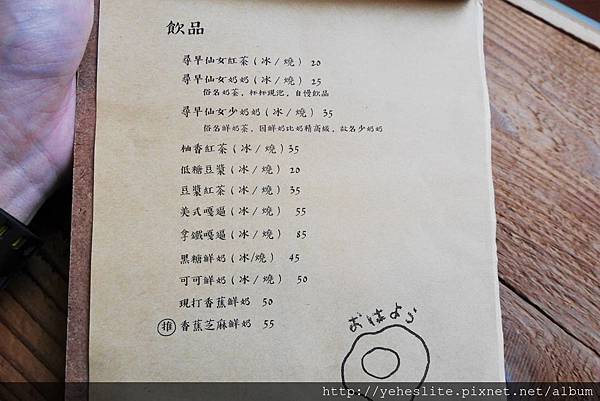 飲品
尋早仙女紅茶(冰/燒) 20
尋早仙女奶奶(冰/燒) 25
俗名奶茶，杯杯現泡，自慢飲品
尋早仙女少奶奶(冰/燒) 35
俗名鮮奶茶，因鮮奶比奶精高級，故名少奶奶
柚香紅茶(冰/燒)35
低糖豆漿(冰/燒) 20
豆漿紅茶(冰/燒) 35
美式嘎逼(冰/燒) 55
拿鐵嘎逼(冰/燒) 85
黑糖鮮奶(冰/燒) 45
可可鮮奶(冰/燒) 50
現打香蕉鮮奶 50
推 香蕉芝麻鮮奶 55
おはよう
http://yeheslite.pixnet.net/album